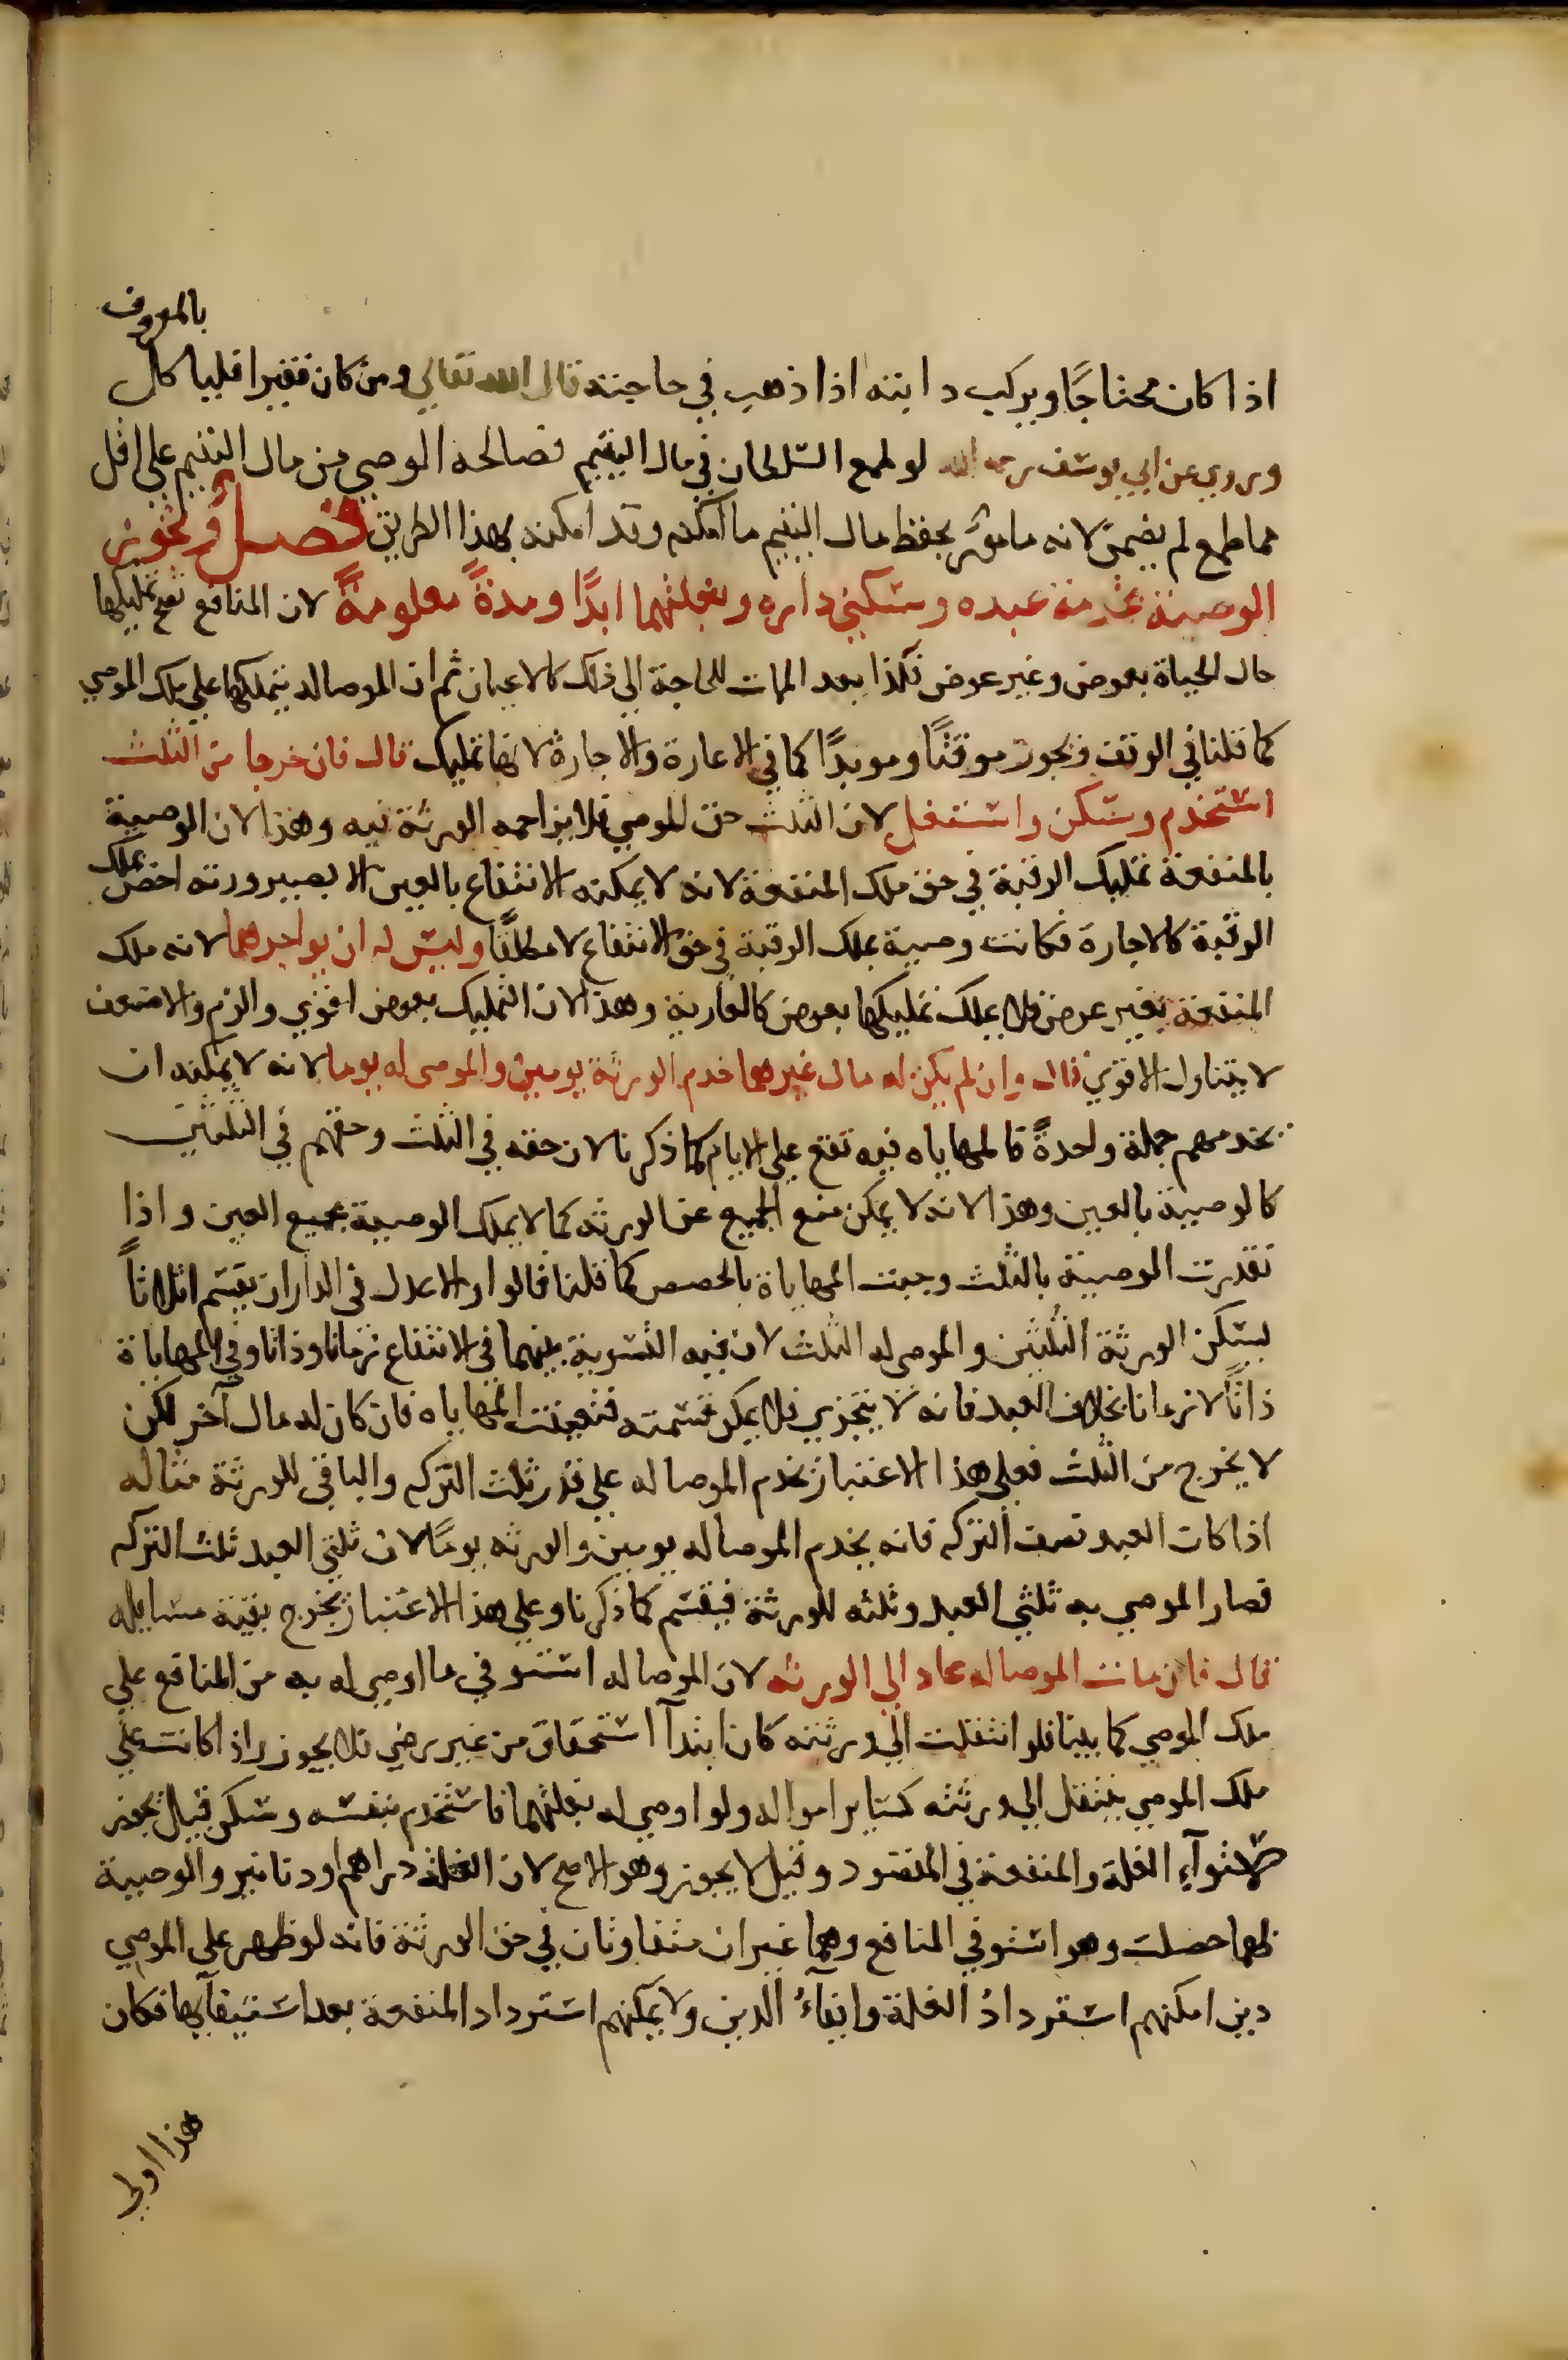 بالمعروف
اذا كان محتاجًا ويركب دابته اذا ذهب في حاجته قال الله تعالي ومن كان فقيرا فلياكل
وروي عن ابي يوسف رحمه الله لو طمع السلطان في مال اليتيم فصالحه الوصي من مال اليتيم علي اقل
مما طمع لم يضمن لانه مامور بحفظ مال اليتيم ما امكنه وقد امكنه بهذا الطريق فصل وتجوز
الوصية بخدمة عبده وسكني داره وبغلتهما ابدًا ومدةً معلومةً لان المنافع تصح تمليكها
حال الحياة بعوض وغير عوض فكذا بعد الممات للحاجة الي ذلك كالاعيان ثم ان الموصا له يتملكها علي ملك الموصي
كما قلنا في الوقف وتجوز موقتًا وموبدًا كما في الاعارة والاجارة لانها تمليك قال فان خرجا من الثلث
استخدم وسكن واستغل لان الثلث حق للموصي فلا يزاحمه الورثة فيه وهذا لان الوصية
بالمنفعة تمليك الرقبة في حق ملك المنفعة لانه لا يمكنه الانتفاع بالعين الا بصيرورته اخص بملك
الرقبة كالاجارة فكانت وصية بملك الرقبة في حق الانتفاع لا مطلقًا وليس له ان يواجرهما لانه ملك
المنفعة بغير عوض فلا يملك تمليكها بعوض كالعارية وهذا لان التمليك بعوض اقوي والزم والاضعف
لا يتناول الاقوي قال وان لم يكن له مال غيرهما خدم الورثة يومين والموصى له يوما لانه لا يمكنه ان
يخدمهم جملة واحدةً فالمهاياه فيه تقع علي الايام كما ذكرنا لان حقه في الثلث وحقهم في الثلثين
كالوصية بالعين وهذا لانه لا يمكن منع الجميع عن الورثه كما لا يملك الوصية بجميع العين واذا
تقدرت الوصية بالثلث وجبت المهاياة بالحصص كما قلنا قالوا والاعدل في الدار ان يقسم اثلاثًا
ليسكن الورثة الثلثين والموصى له الثلث لان فيه التسوية بينهما في الانتفاع زمانا وذاتا وفي المهاياة
ذاتًا لا زمانا بخلاف العبد فانه لا يتجزي فلا يمكن قسمته فتعينت المهاياه فان كان له مال آخر لكن
لا يخرج من الثلث فعلي هذا الاعتبار يخدم الموصا له علي قدر ثلث التركه والباقي للورثة مثاله
اذا كان العبد نصف التركه فانه يخدم الموصا له يومين والورثه يومًا لان ثلثي العبد ثلث التركه
فصار الموصي به ثلثي العبد وثلثه للورثة فيقسم كما ذكرنا وعلي هذا الاعتبار يخرج بقية مسايله
قال فان مات الموصا له عاد الي الورثه لان الموصا له استوفي ما اوصي له به من المنافع علي
ملك الموصي كما بينا فلو انتقلت الي ورثته كان ابتدآ استحقاق من غير رضي فلا يجوز واذا كانت علي
ملك الموصي ينتقل الي ورثته كساير امواله ولو اوصي له بغلتهما فاستخدم بنفسه وسكن قيل يجوز
لاستوآء الغلة والمنفعة في المقصود وقيل لا يجوز وهو الاصح لان الغلة دراهم او دنانير والوصية
بهما حصلت وهو استوفي المنافع وهما غيران متفاوتان في حق الورثة فانه لو ظهر علي الموصي
دين امكنهم استرداد الغلة وايفآءُ الدين ولا يمكنهم استرداد المنفعة بعد استيفآيها فكان
هذا اولي